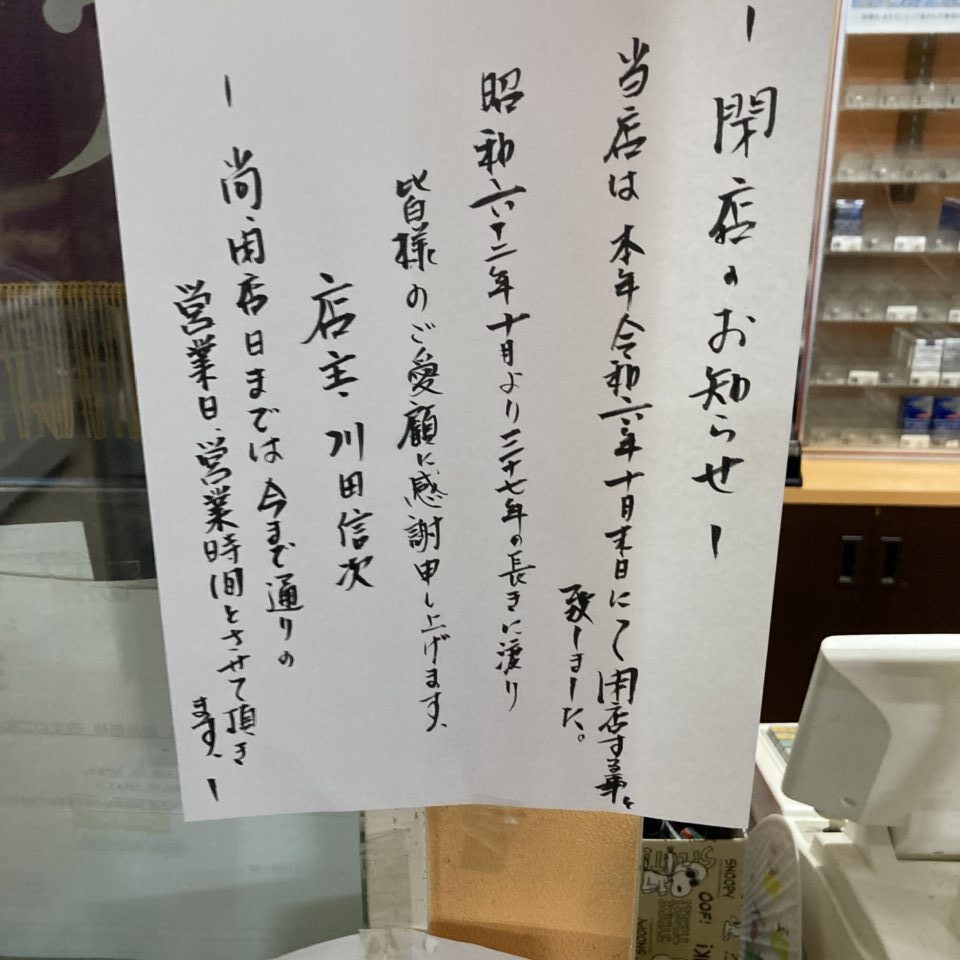 ー閉店のお知らせー
当店は本年令和六年十月末日にて閉店する事と
致しました。
昭和六十二年十月より三十七年の長きに渡り
皆様のご愛顧に感謝申し上げます。
店主 川田信次
ー尚、閉店日までは今まで通りの
営業日、営業時間とさせて頂き
ます。ー
SNOOPY
OOF!